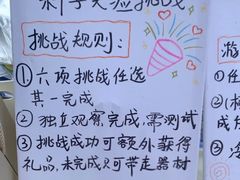 科学实验挑战
挑战规则:
① 六项挑战任选
其一完成
② 独立观察完成,需测试
③ 挑战成功可额外获得
礼品,未完成只可带走器材
游
①
成
②
③